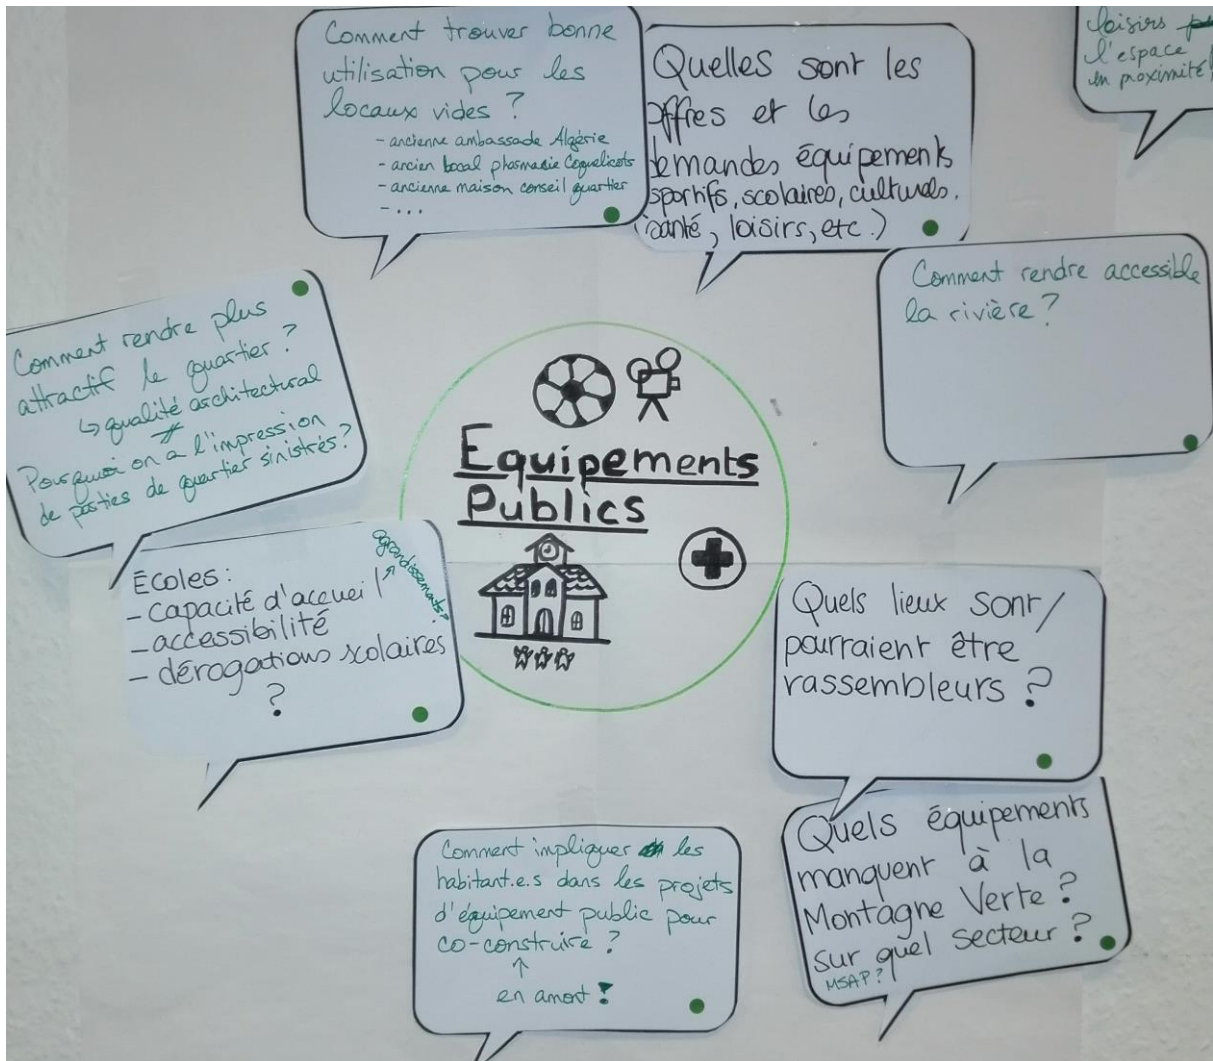 Comment trouver bonne
utilisation pour les
locaux vides ?
- ancienne ambassade Algérie
- ancien local pharmacie Coquelicots
- ancienne maison conseil quartier
- ...
Quelles sont les
offres et les
demandes équipements
sportifs, scolaires, culturels,
santé, loisirs, etc.)
loisirs
l'espace
en proximité
Comment rendre accessible
la rivière ?
Comment rendre plus
attractif le quartier ?
↳ qualité architectural
≠
Pourquoi on a l'impression
de parties de quartier sinistrés ?
Equipements
Publics
Écoles :
- capacité d'accueil
agrandissements ?
- accessibilité
- dérogations scolaires
?
Quels lieux sont/
pourraient être
rassembleurs ?
Quels équipements
manquent à la
Montagne Verte ?
sur quel secteur ?
MSAP ?
Comment impliquer les
habitant.e.s dans les projets
d'équipement public pour
co-construire ?
↑
en amont !